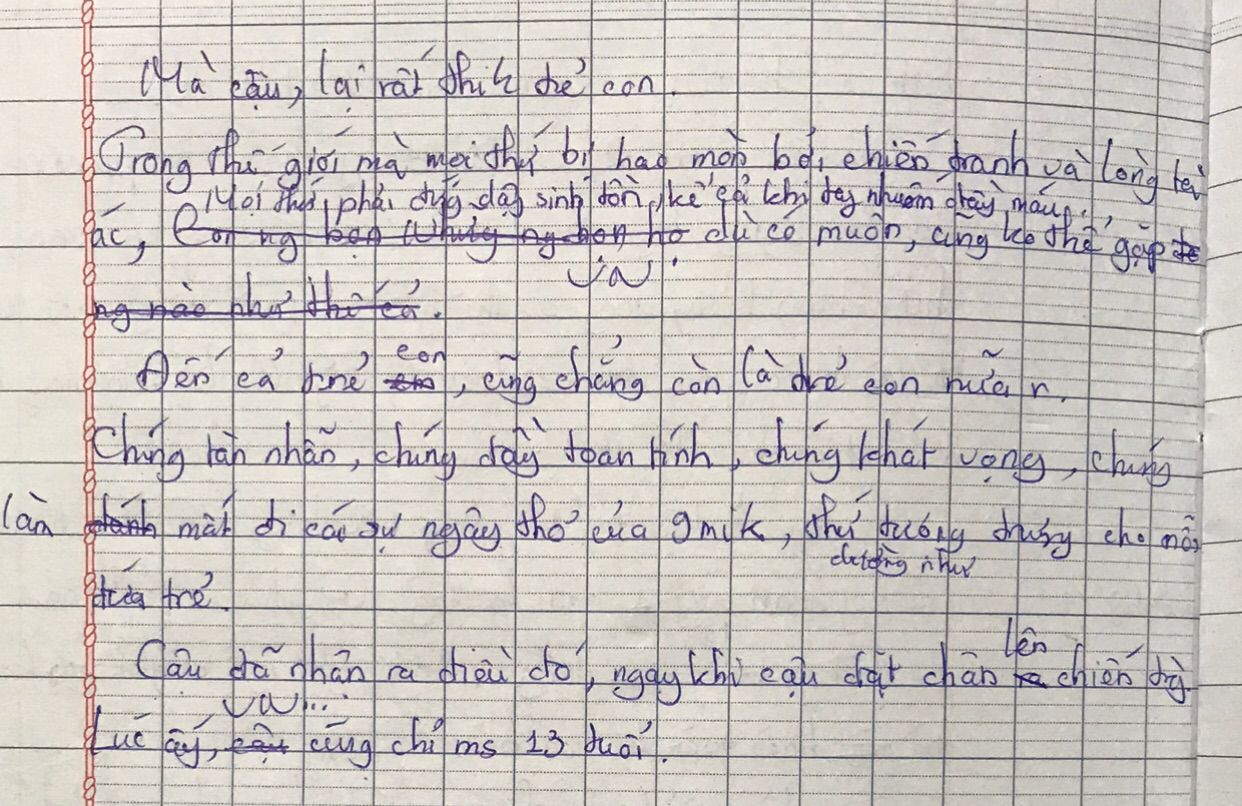 Mà cậu, lại rất thik trẻ con.
Trong thế giới mà mọi thứ bị hao mòn bởi chiến tranh và lòng
Mọi thứ phải đấy sinh tồn, kể cả khi tay nhuốm đầy máu.
ác, Con ng bọn họ dù có muốn, cũng ko thể gặp
ng nào như thế cả.
Đến cả trẻ con, cũng chẳng còn là trẻ con nữa r.
Chúng tàn nhẫn, chúng đầy toan tính, chúng khát vọng, chúng
làm đánh mất đi cái sự ngây thơ của 9 mik, thứ tượng trưng cho mỗi
dường như
đứa trẻ.
Cậu đã nhận ra điều đó, ngay khi cậu đặt chân lên chiến
Lúc ấy, cậu cũng chỉ ms 13 tuổi.